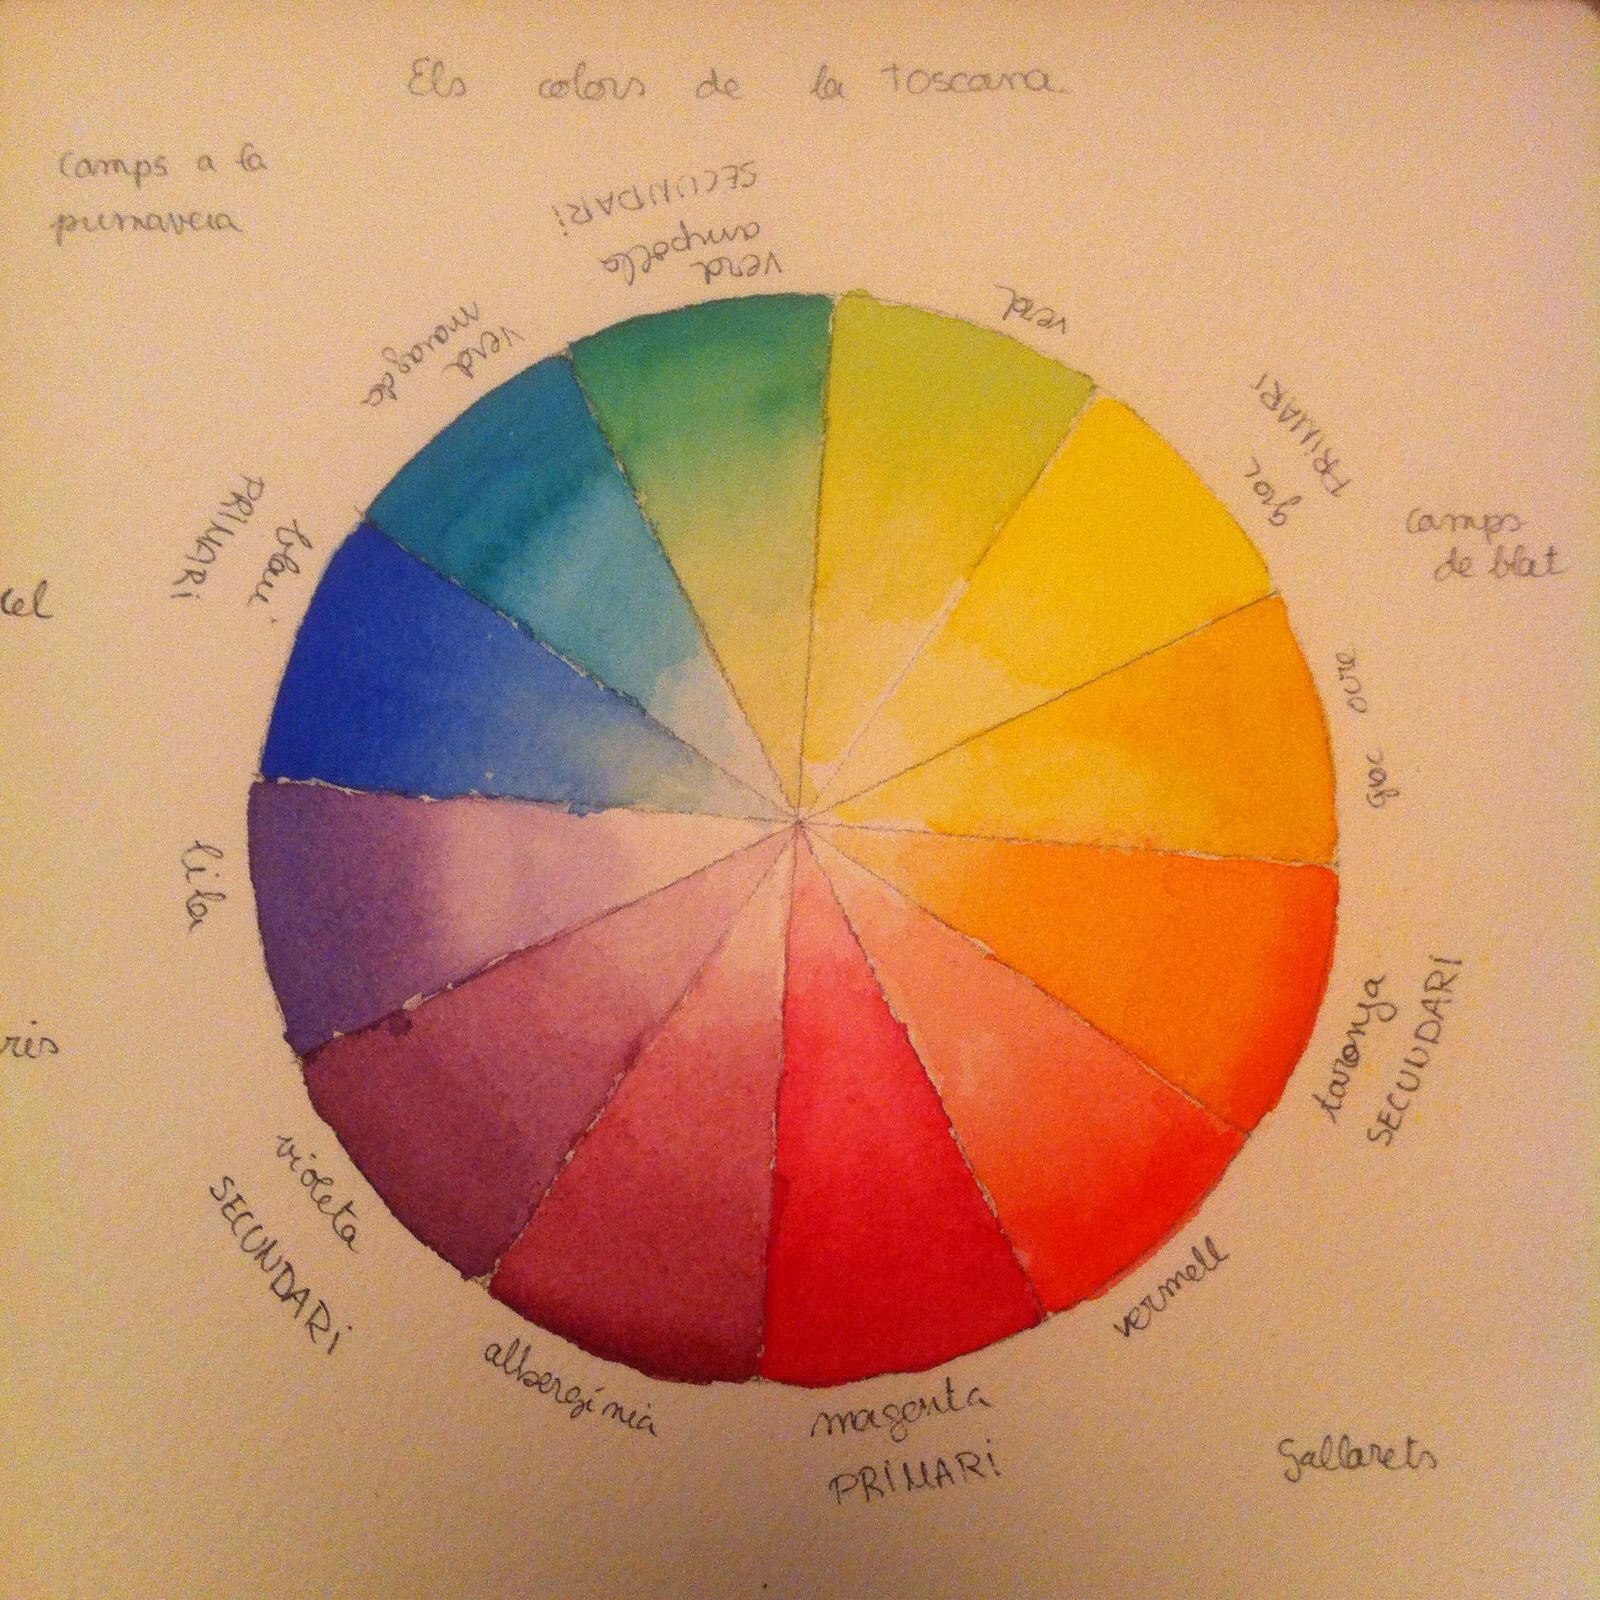 Els colors de la Toscana
camps a la
primavera
SECUNDARI
verd
ampolla
verd
verd
maragda
PRIMARI
groc
camps
de blat
PRIMARI
blau
cel
groc ocre
lila
taronja
SECUNDARI
violeta
SECUNDARI
vermell
albergínia
magenta
PRIMARI
Gallarets